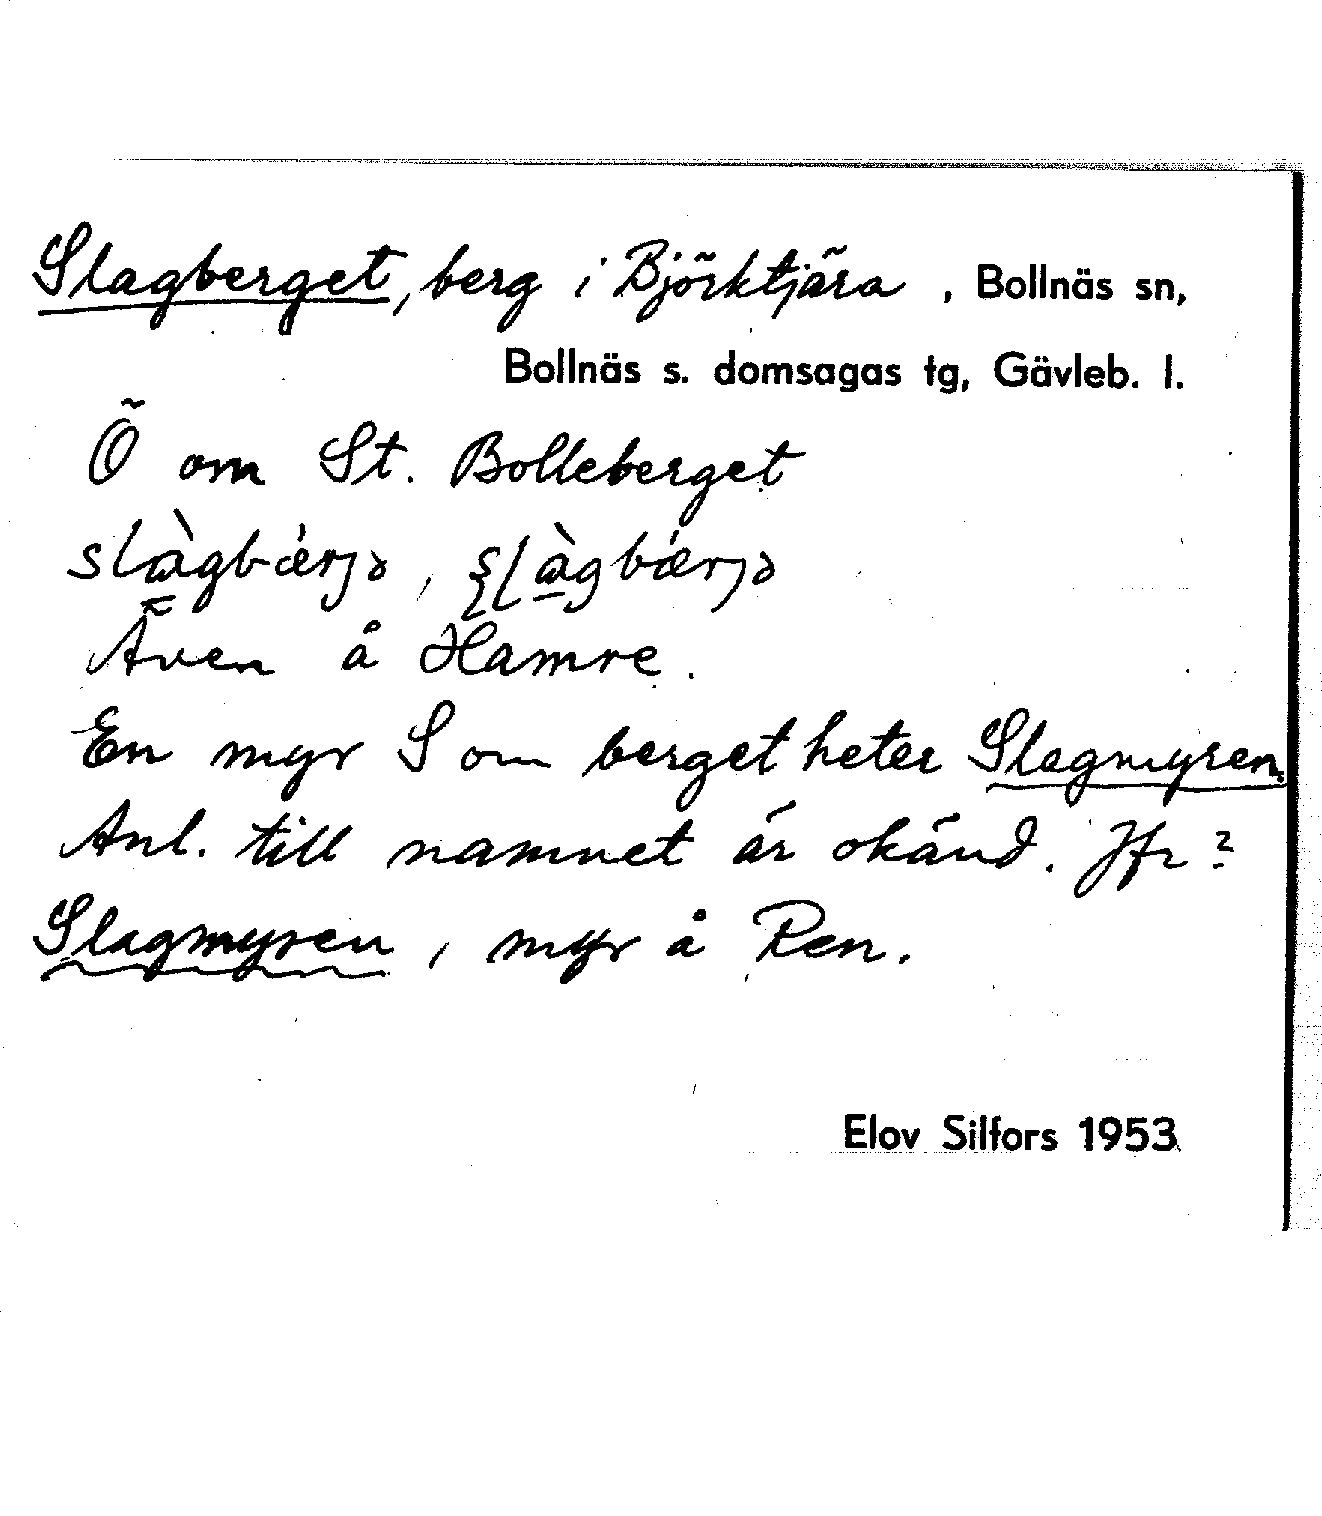 Slagberget, berg i Björktjära, Bollnäs sn,
Bollnäs s. domsagas tg, Gävleb. l.
Ö om St. Bolleberget
slàgbǽrjə, ʂɭàgbǽrjə
Även å Hamre.
En myr S om berget heter Slagmyren.
Anl. till namnet är okänd. Jfr?
Slagmyren, myr å Ren.
Elov Silfors 1953